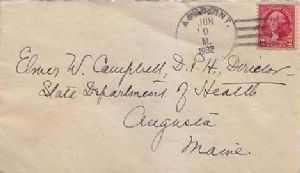 JUN
9
M.
1932
Elmer W. Campbell, D.P.H., Director
State Department of Health
Augusta
Maine.